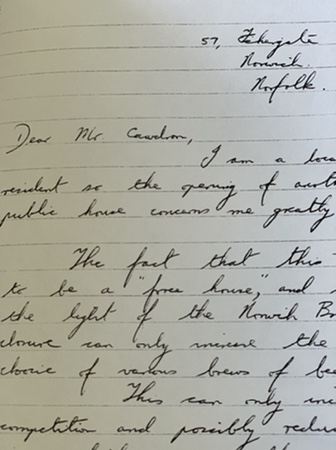 57, Fishergate
Norwich.
Norfolk.
Dear Mr. Cawdron,
I am a loca
resident so the opening of anoth
public house concerns me greatly
The fact that this
to be a "free house," and
the light of the Norwich Br
closure can only increase the
choice of various brews of bee
This can only
competition and possibly reduc